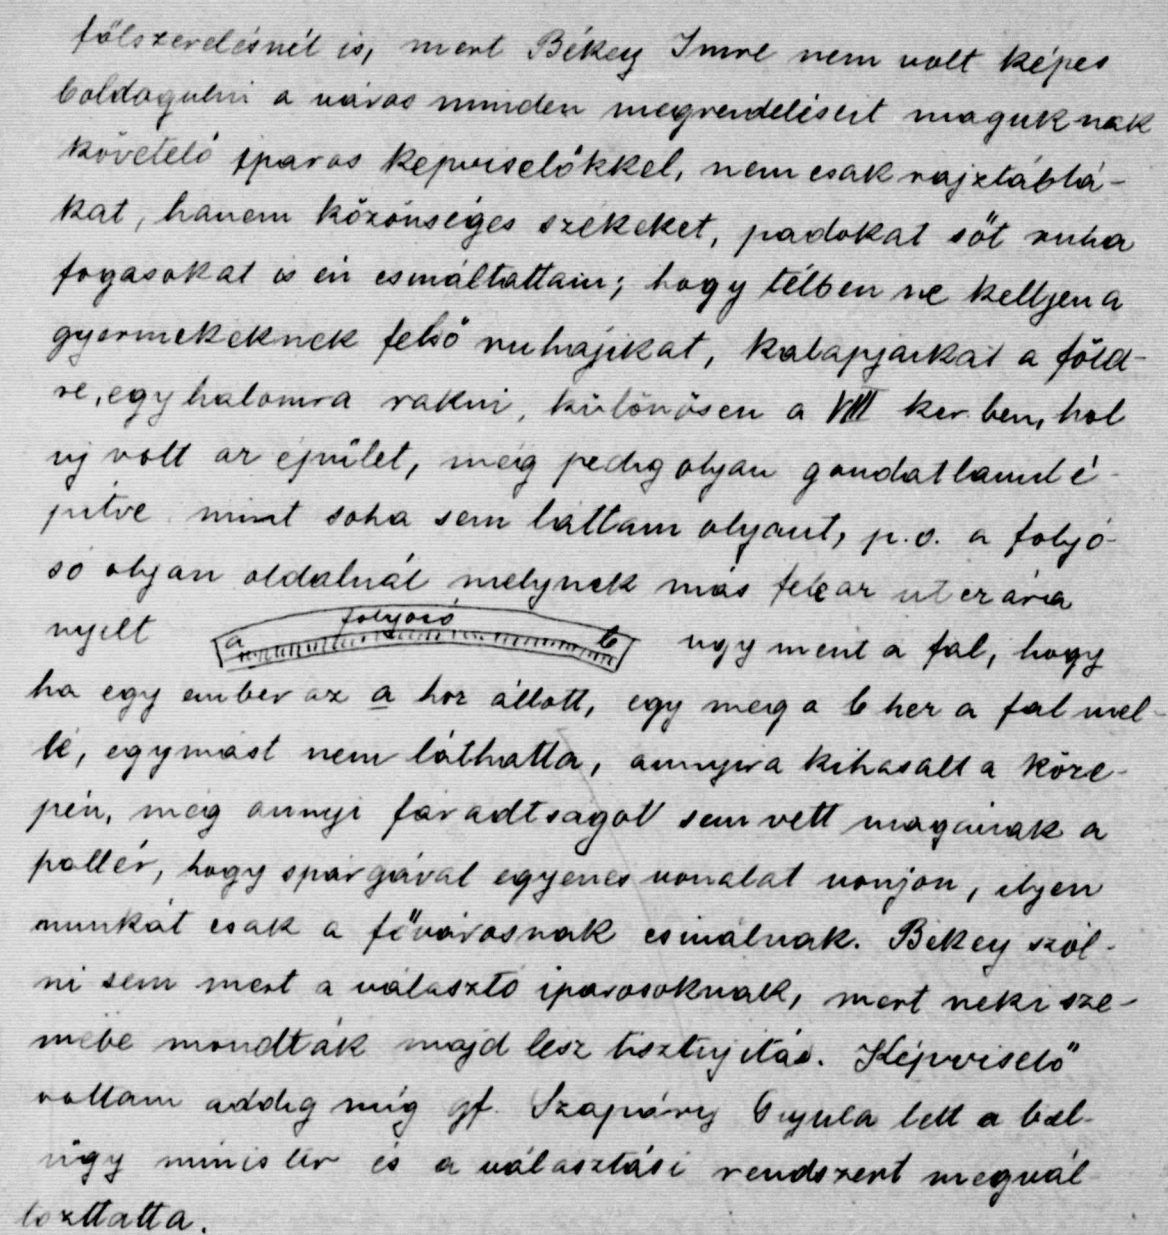 fölszerelésnél is, mert Békey Imre nem volt képes
boldogulni a város minden megrendeléseit maguknak
követelő iparos képviselőkkel, nem csak rajztáblá-
kat, hanem közönséges székeket, padokat sőt ruha
fogasokat is én csináltattam; hogy télben ne kelljen a
gyermekeknek felső ruhájikat, kalapjaikat a föld-
re, egy halomra rakni, különösen a VIII ker. ben, hol
uj volt az épület, még pedig olyan gondatlanul é-
pitve mint soha sem láttam olyant, p. o. a folyó-
só olyan oldalnál melynek más fele az utczára
nyilt
folyosó
a b
ugy ment a fal, hogy
ha egy ember az a hoz állott, egy meg a b hez a fal mel-
lé, egymást nem láthatta, annyira kihasalt a köze-
pén, még annyi fáradtságot sem vett magának a
pallér, hogy spárgával egyenes vonalat vonjon, ilyen
munkát csak a fővárosnak csinálnak. Békey szól-
ni sem mert a választó iparosoknak, mert neki sze-
mébe mondták majd lesz tisztujitás. Képviselő
voltam addig mig gf. Szapáry Gyula lett a bel-
ügy minister és a választási rendszert megvál-
toztatta.